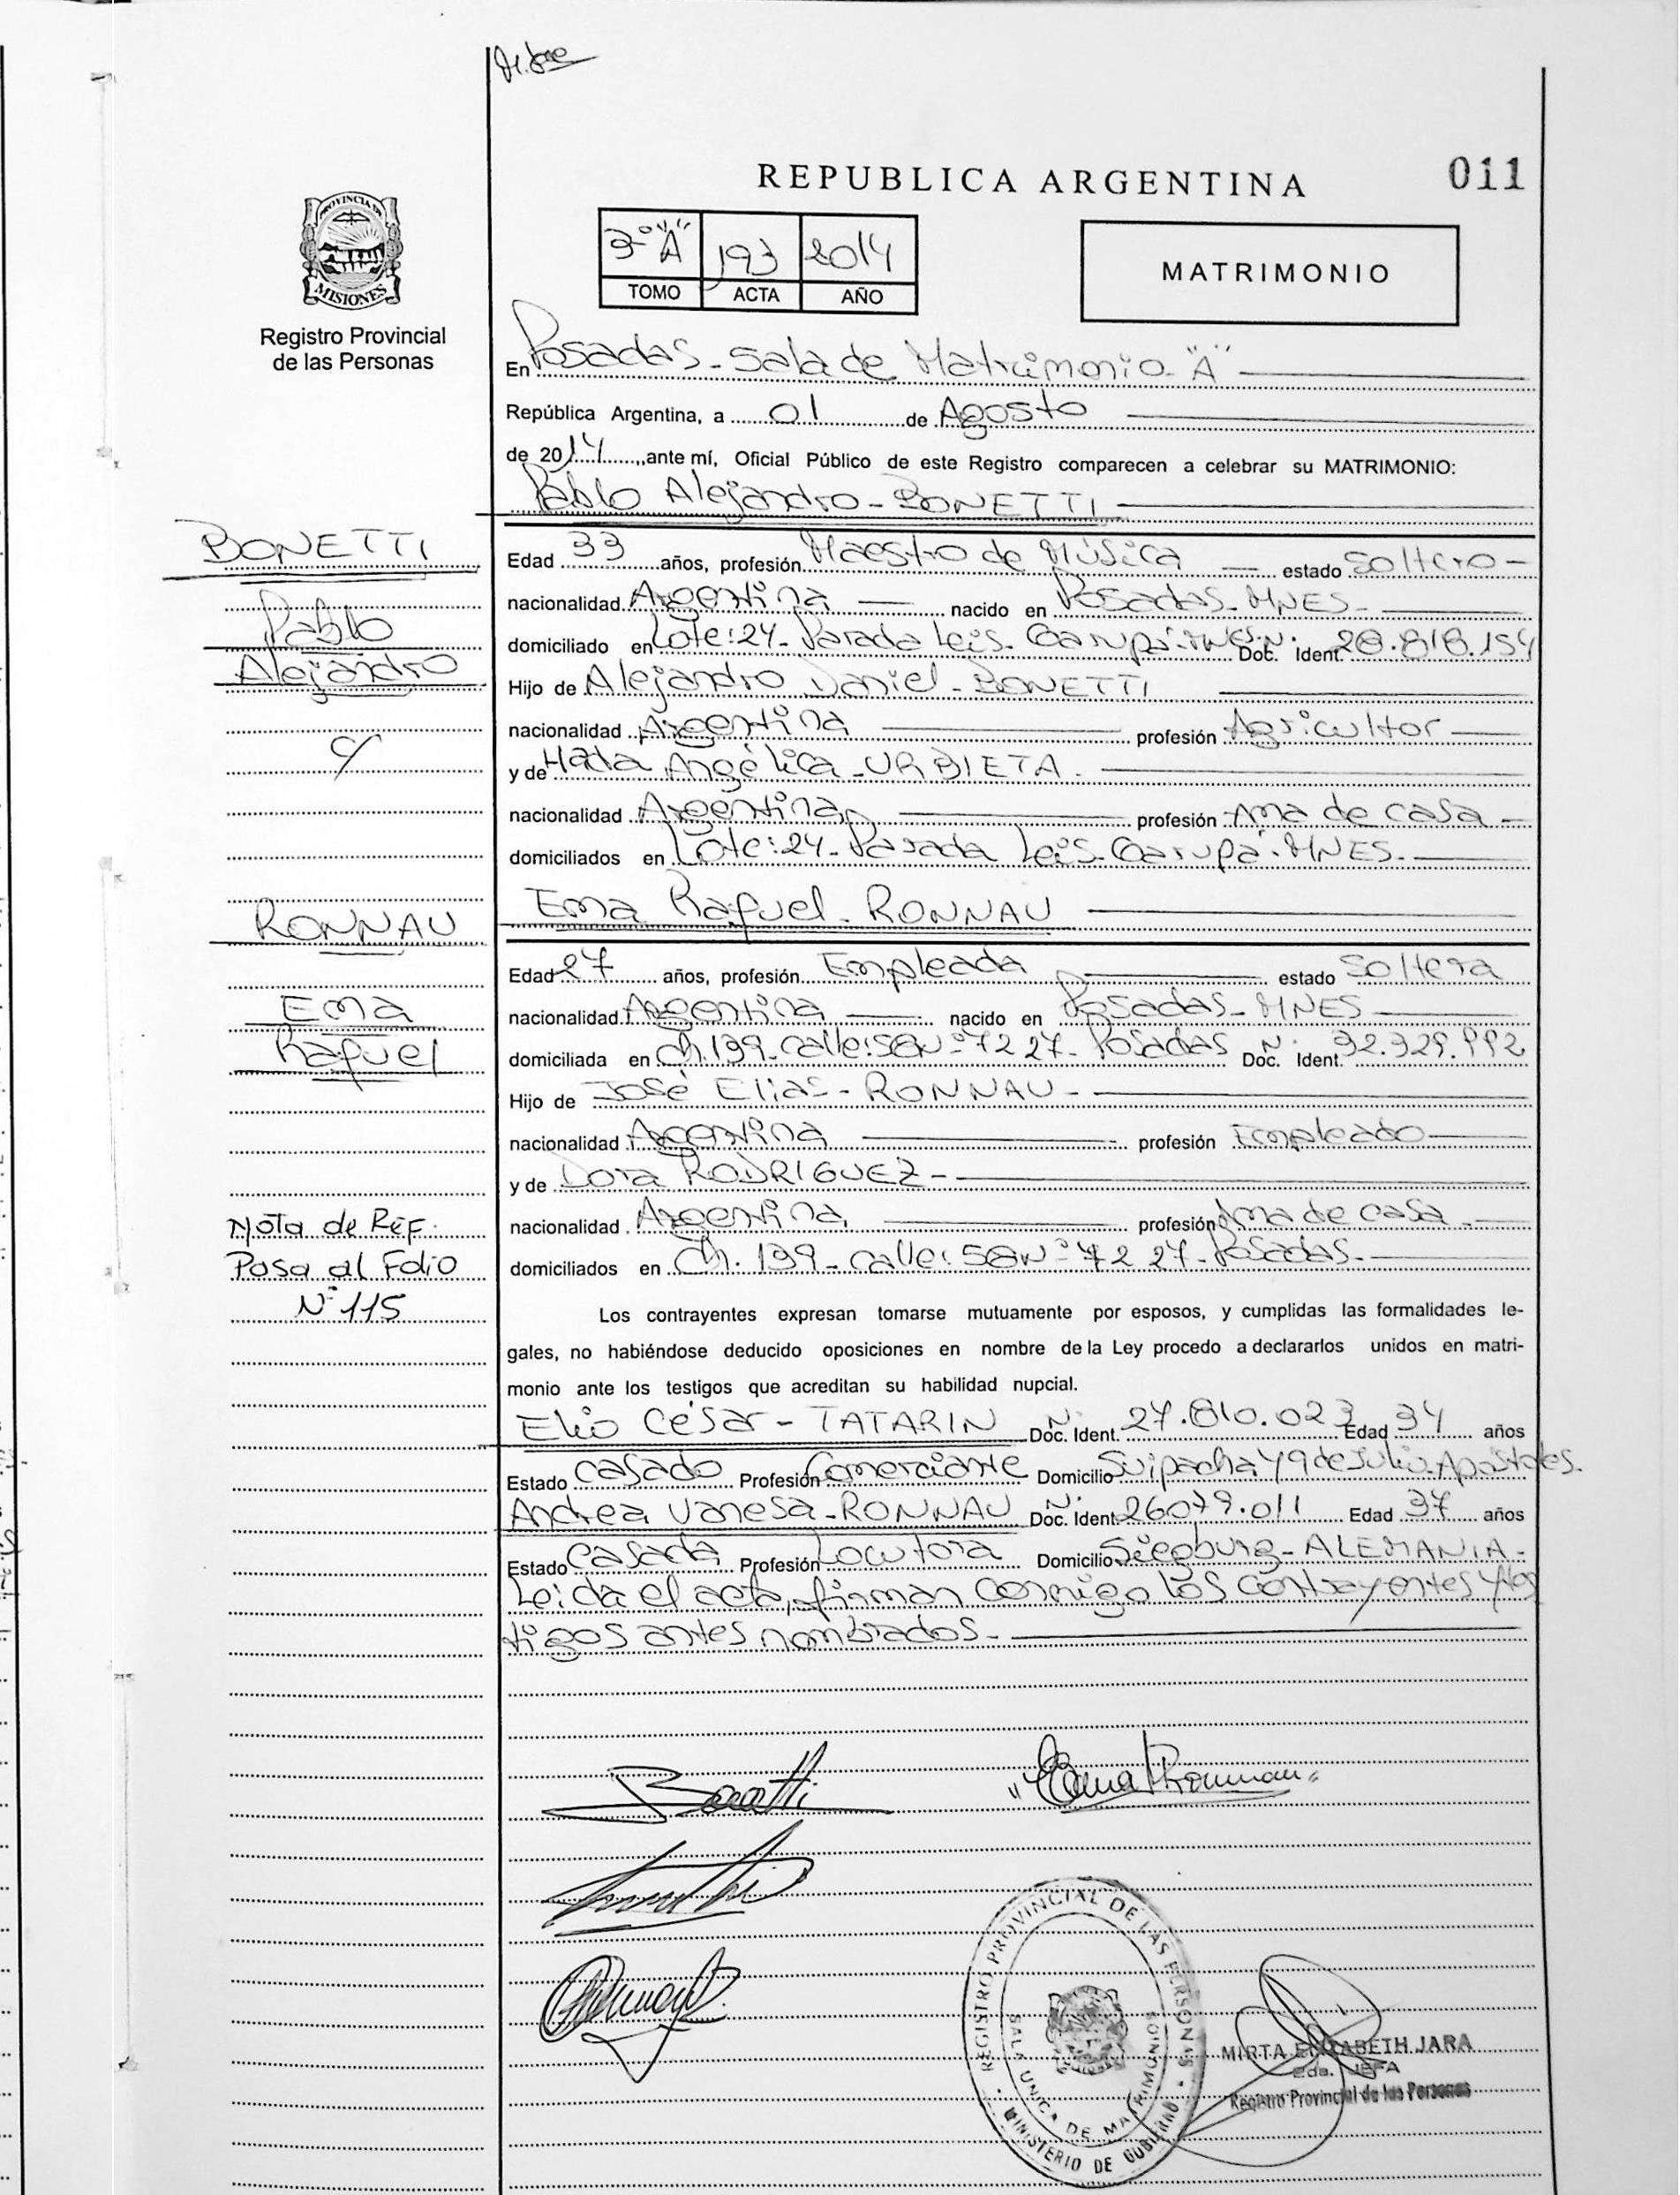 REPUBLICA ARGENTINA
011
PROVINCIA DE
MISIONES
Registro Provincial
de las Personas
3° "A" 193 2014
TOMO ACTA AÑO
MATRIMONIO
En Posadas - Sala de Matrimonio "A"
República Argentina, a 01 de Agosto
de 2014, ante mí, Oficial Público de este Registro comparecen a celebrar su MATRIMONIO:
Pablo Alejandro - BONETTI
BONETTI
Pablo
Alejandro
c/
RONNAU
Ema
Raquel
Nota de REF.
Pasa al Folio
N° 115
Edad 33 años, profesión Maestro de Música estado soltero -
nacionalidad Argentina nacido en Posadas - MNES -
domiciliado en Lote: 24 - Parada Leis - Garupá - MNES. Doc. Ident. N° 28.818.154
Hijo de Alejandro Daniel - BONETTI
nacionalidad Argentina profesión Agricultor
y de Hada Angélica - URBIETA.
nacionalidad Argentina profesión Ama de casa -
domiciliados en Lote: 24 - Parada Leis - Garupá - MNES.
Ema Raquel - RONNAU
Edad 27 años, profesión Empleada estado soltera
nacionalidad Argentina nacido en Posadas - MNES
domiciliada en Ch. 139 - calle: 58 N° 7227 - Posadas Doc. Ident. N°
Hijo de José Elias - RONNAU -
nacionalidad Argentina profesión Empleado
y de Dora RODRIGUEZ -
nacionalidad Argentina profesión Ama de casa -
domiciliados en Ch. 139 - calle: 58 N° 7227 - Posadas -
Los contrayentes expresan tomarse mutuamente por esposos, y cumplidas las formalidades le-
gales, no habiéndose deducido oposiciones en nombre de la Ley procedo a declararlos unidos en matri-
monio ante los testigos que acreditan su habilidad nupcial.
Elio César - TATARIN Doc. Ident. N° 27.810.023 Edad 34 años
Estado casado Profesión Comerciante Domicilio Suipacha y 9 de Julio - Apóstoles.
Andrea Vanesa - RONNAU Doc. Ident. N° 26079.011 Edad 37 años
Estado casada Profesión Locutora Domicilio Siegburg - ALEMANIA -
Leída el acta, firman conmigo los contrayentes y tes
tigos antes nombrados -
Bonetti
"Ema Ronnau"
REGISTRO PROVINCIAL DE LAS PERSONAS
SALA UNICA DE MATRIMONIOS
MINISTERIO DE GOBIERNO
MIRTA ELIZABETH JARA
2da. JEFA
Registro Provincial de las Personas